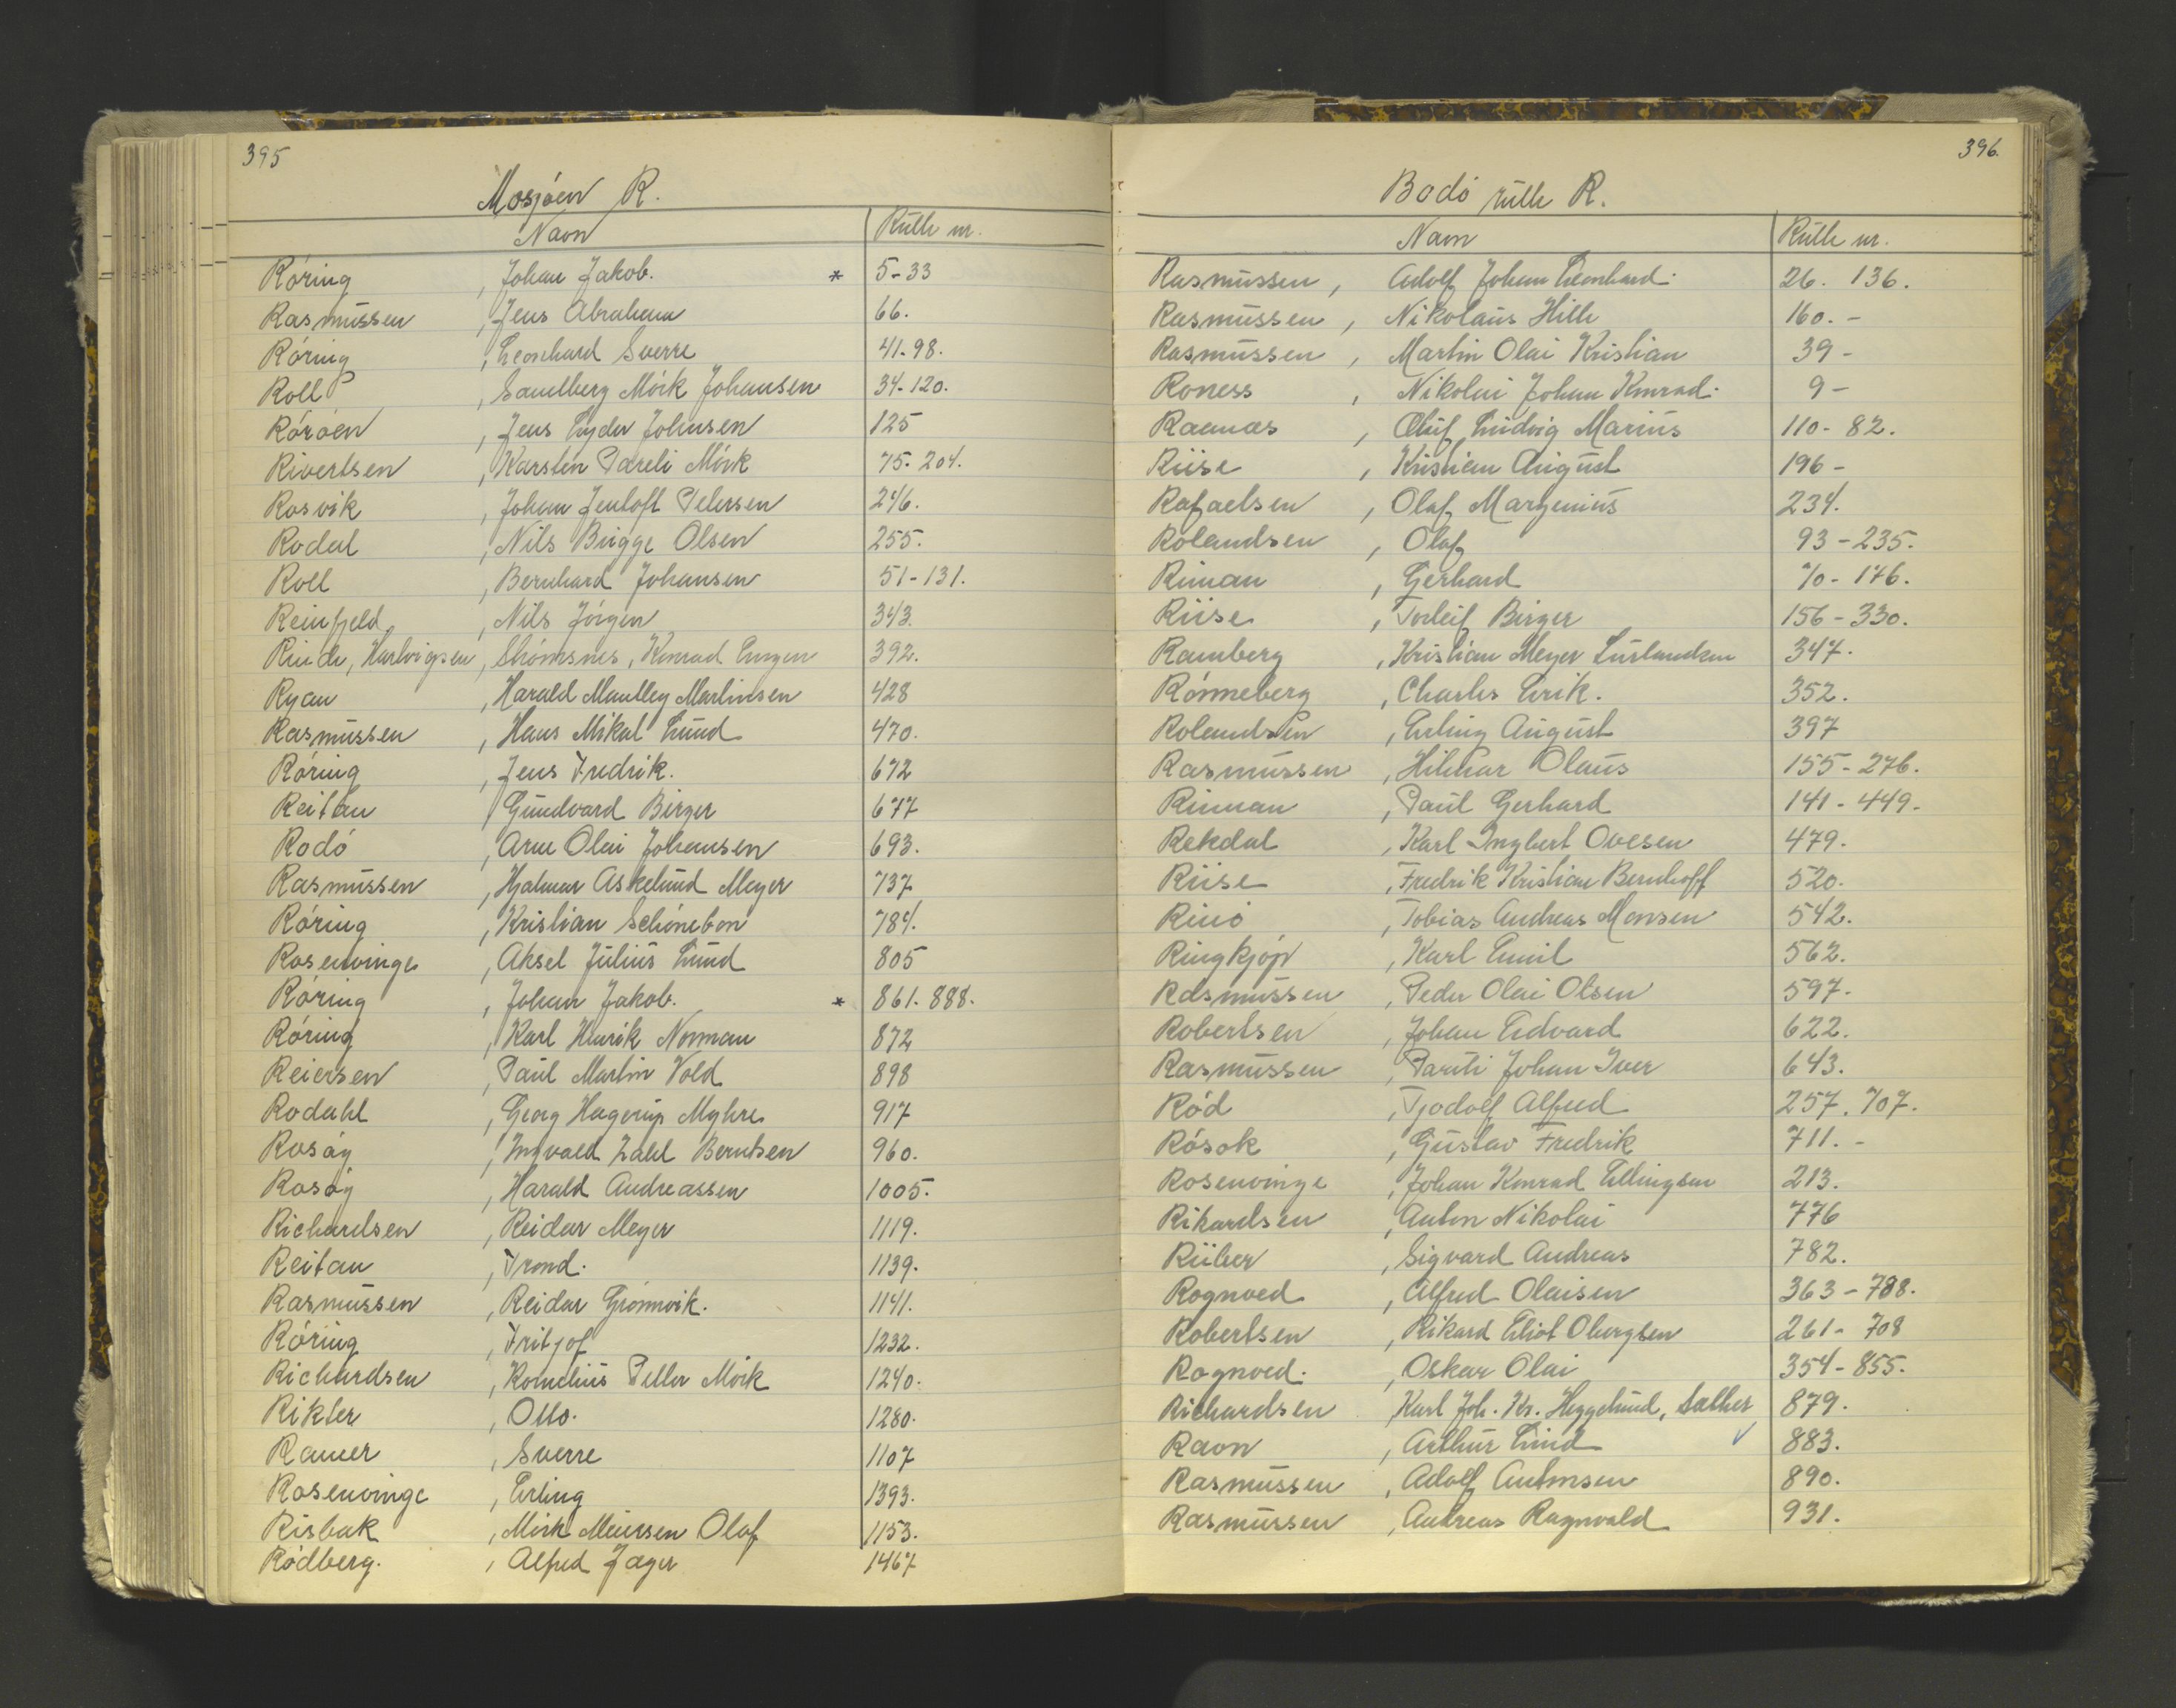 395
Mosjöen R.
Navn Rulle nr.
Röring, Johan Jakob. * 5-33
Rasmussen, Jens Abraham 66.
Röring, Leonhard Sverre 41-98.
Roll, Sandberg Mörk Johansen 34-120.
Röröen, Jens Lyder Johnsen 125
Rivertsen, Karsten Pareli Mörk 75-204.
Rosvik, Johan Jentoft Petersen 246.
Rodal, Nils Brigge Olsen 255.
Roll, Bernhard Johansen 51-131.
Reinfjeld, Nils Jörgen 343.
Hartvigsen, Strömsnes, Konrad 392.
Ryan, Harald Martinsen 428
Rasmussen, Hans Mikal Lund 470.
Röring, Jens Fredrik. 672
Reitan, Gundvard Birger 677
Rodö, Arne Olai Johansen 693.
Rasmussen, Hjalmar Askelund Meyer 737
Röring, Kristian Schönebon 784.
Rosenvinge, Aksel Julius Lund 805
Röring, Johan Jakob. * 861. 888.
Röring, Karl Henrik Norman 872
Reiersen, Paul Martin Vold 898
Rodahl, Georg Hagerup Myhre 917
Rosöy, Ingvald Zahl Berntsen 960.
Rosöy, Harald Andreassen 1005.
Richardsen, Reidar Meyer 1119.
Reitan, Trond. 1139.
Rasmussen, Reidar Grönnvik. 1141.
Röring, Fritjof 1232.
Richardsen, Kornelius Petter Mörk 1240.
Rikter, Otto. 1280.
Ramer, Sverre 1107
Rosenvinge, Erling 1393.
Risbak, Mörk Meiersen Olaf 1153.
Rödberg., Alfred Jager 1467
396.
Bodö rulle R.
Navn Rulle nr.
Rasmussen, Adolf Johan Leonhard. 26. 136.
Rasmussen, Nikolaus Hille 160. -
Rasmussen, Martin Olai Kristian 39 -
Roness, Nikolai Johan Konrad. 9 -
Raanaas, Oluf Ludvig Marius 110- 82.
Riise, Kristian August 196 -
Rafaelsen, Olaf Margenius 234.
Rolandsen, Olaf 93 - 235.
Rinnan, Gerhard 70 - 146.
Riise, Torleif Birger 156 - 330.
Ramberg, Kristian Meyer 347.
Rönneberg, Charles Erik. 352.
Rolandsen, Erling August 397
Rasmussen, Hilmar Olaus 155 - 276.
Rinnan, Paul Gerhard 141 - 449.
Rekdal, Karl Ingbert Ovesen 479.
Riise, Fredrik Kristian Bernhoff 520.
Tobias Andreas Monsen 542.
Ringkjöp, Karl Emil 562.
Rasmussen, Peder Olai Olsen 597.
Robertsen, Johan Edvard 622.
Rasmussen, Johan Iver 643.
Röd, Tjodolf Alfred 257. 707.
Rösok, Gustav Fredrik 711. -
Rosenvinge, Johan Konrad Ellingsen 213.
Rikardsen, Anton Nikolai 776
Riiber, Sigvard Andreas 782.
Rognved, Alfred Olaisen 363 - 788.
Robertsen, Rikard Eliot 261 - 708
Rognved., Oskar Olai 354 - 855.
Richardsen Karl Joh. Kr. Heggelund, Sæther 879.
Ravn, Arthur Lind 883.
Rasmussen, Adolf Antonsen 890.
Rasmussen, Andreas Ragnvald 931.